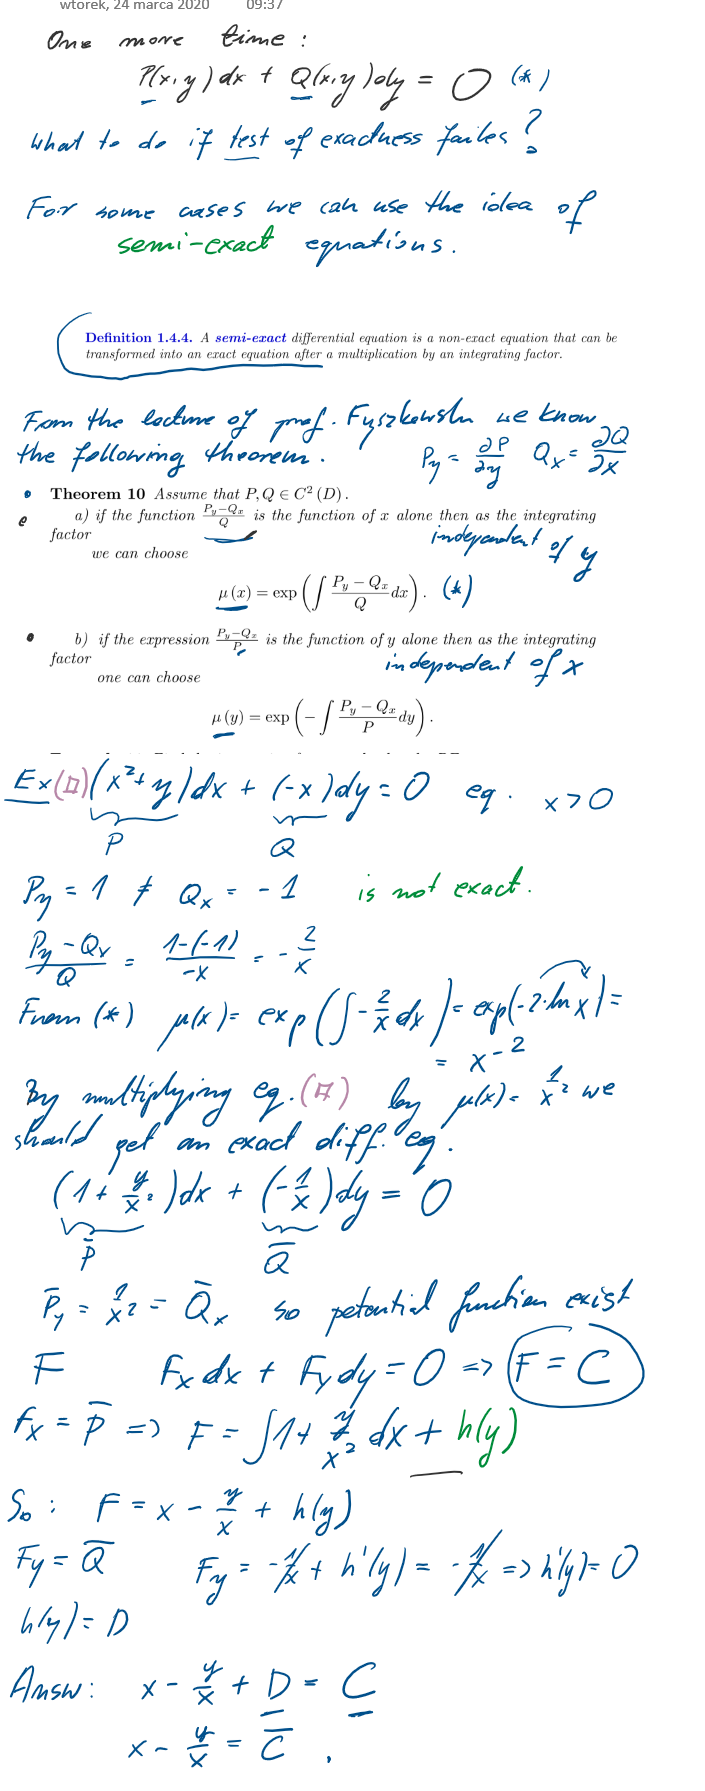 wtorek, 24 marca 2020 09:37
One more time :
P(x,y)dx + Q(x,y)dy = 0 (*)
What to do if test of exactness failes ?
For some cases we can use the idea of
semi-exact equations.
Definition 1.4.4. A semi-exact differential equation is a non-exact equation that can be
transformed into an exact equation after a multiplication by an integrating factor.
From the lecture of prof. Fryszkowski we know
the following theorem. P_y = ∂P/∂y Q_x = ∂Q/∂x
Theorem 10 Assume that P, Q ∈ C² (D).
a) if the function (P_y−Q_x)/Q is the function of x alone then as the integrating
factor independent of y
we can choose
μ(x) = exp(∫ (P_y − Q_x)/Q dx). (*)
b) if the expression (P_y−Q_x)/P is the function of y alone then as the integrating
factor independent of x
one can choose
μ(y) = exp(−∫ (P_y − Q_x)/P dy).
Ex(□)(x²+y)dx + (-x)dy = 0 eq. x>0
P Q
P_y = 1 ≠ Q_x = -1 is not exact.
(P_y - Q_x)/Q = (1-(-1))/-x = -2/x
From (*) μ(x) = exp(∫-2/x dx) = exp(-2·ln x) =
= x^-2
By multiplying eq.(□) by μ(x) = 1/x² we
should get an exact diff. eq.
(1 + y/x²)dx + (-1/x)dy = 0
P̄ Q̄
P̄_y = 1/x² = Q̄_x so potential function exist
F F_x dx + F_y dy = 0 => F = C
F_x = P̄ => F = ∫1 + y/x² dx + h(y)
So : F = x - y/x + h(y)
F_y = Q̄ F_y = -1/x + h'(y) = -1/x => h'(y) = 0
h(y) = D
Answ: x - y/x + D = C
x - y/x = C̄ .